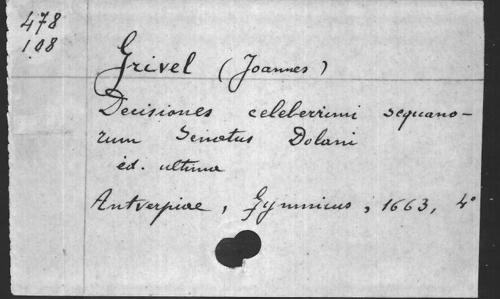 478
108
Grivel (Joannes)
Decisiones celeberrimi sequano-
rum Senatus Dolani
éd. ultima
Antverpiae, Gymnicus, 1663, 4°